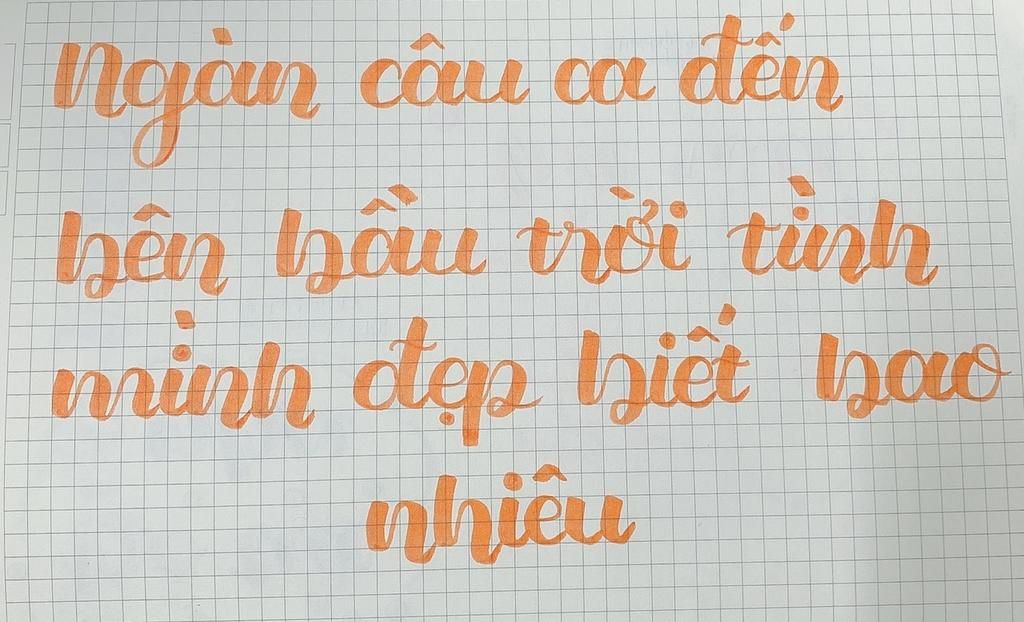 Ngàn câu ca đến
bên bầu trời tình
mình đẹp biết bao
nhiêu